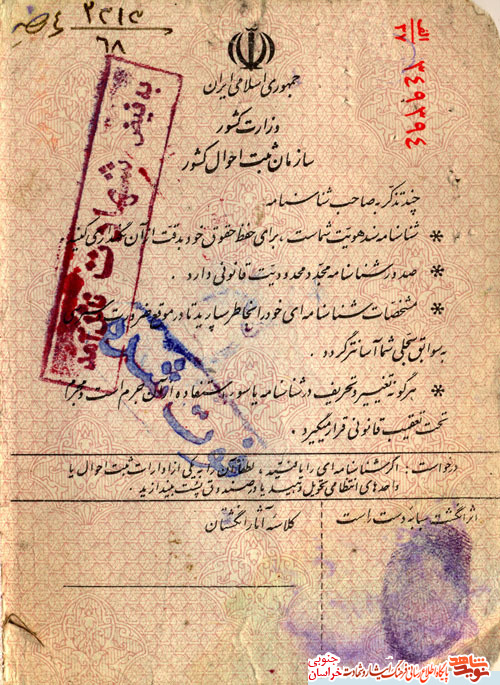 ۲۳۱۳
۶۸
الف
۳۷
۳۴۹۳۹۴
جمهوری اسلامی ایران
وزارت کشور
سازمان ثبت احوال کشور
به فیض شهادت نائل آمد
چند تذکر به صاحب شناسنامه
* شناسنامه سند هویت شماست ، برای حفظ حقوق خود بدقت از آن نگهداری کنید
* صدور شناسنامه مجدد محدودیت قانونی دارد .
* مشخصات شناسنامه ای خود را بخاطر بسپارید تا در موقع ضرورت
به سوابق سجلی شما آسانتر گردد .
* هرگونه تغییر و تحریف در شناسنامه یا سوء استفاده از آن جرم است و مجرم
تحت تعقیب قانونی قرار میگیرد .
فوت شد
درخواست : اگر شناسنامه ای را یافتید ، لطفا آن را بیکی از ادارات ثبت احوال یا
واحدهای انتظامی تحویل دهید یا در صندوق پست بیندازید .
اثر انگشت سبابه دست راست
کلاسه آثار انگشتان
نوید شاهد
پایگاه اطلاع رسانی فرهنگ ایثار و شهادت
خراسان جنوبی